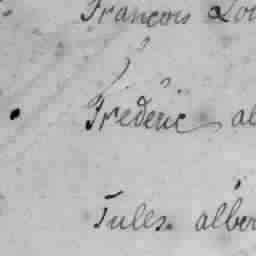 François Lou
Frederic al
Jules. alber